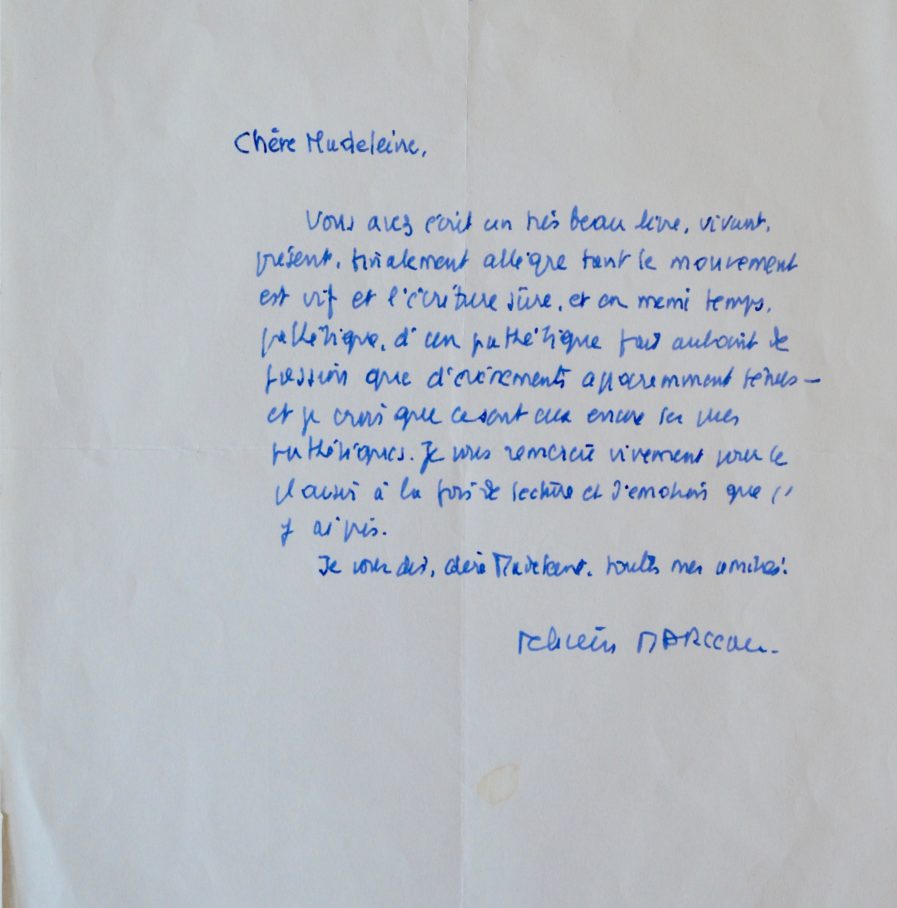 Chère Madeleine,
Vous avez écrit un très beau livre, vivant,
présent, finalement allègre tant le mouvement
est vif et l'écriture sûre, et en même temps,
pathétique, d'un pathétique fait autant de
passion que d'événements apparemment ténus —
et je crois que ce sont eux encore les plus
pathétiques. Je vous remercie vivement pour le
plaisir à la fois de lecture et d'émotions que j'
y ai pris.
Je vous dis, chère Madeleine, toutes mes amitiés.
MARCEAU.